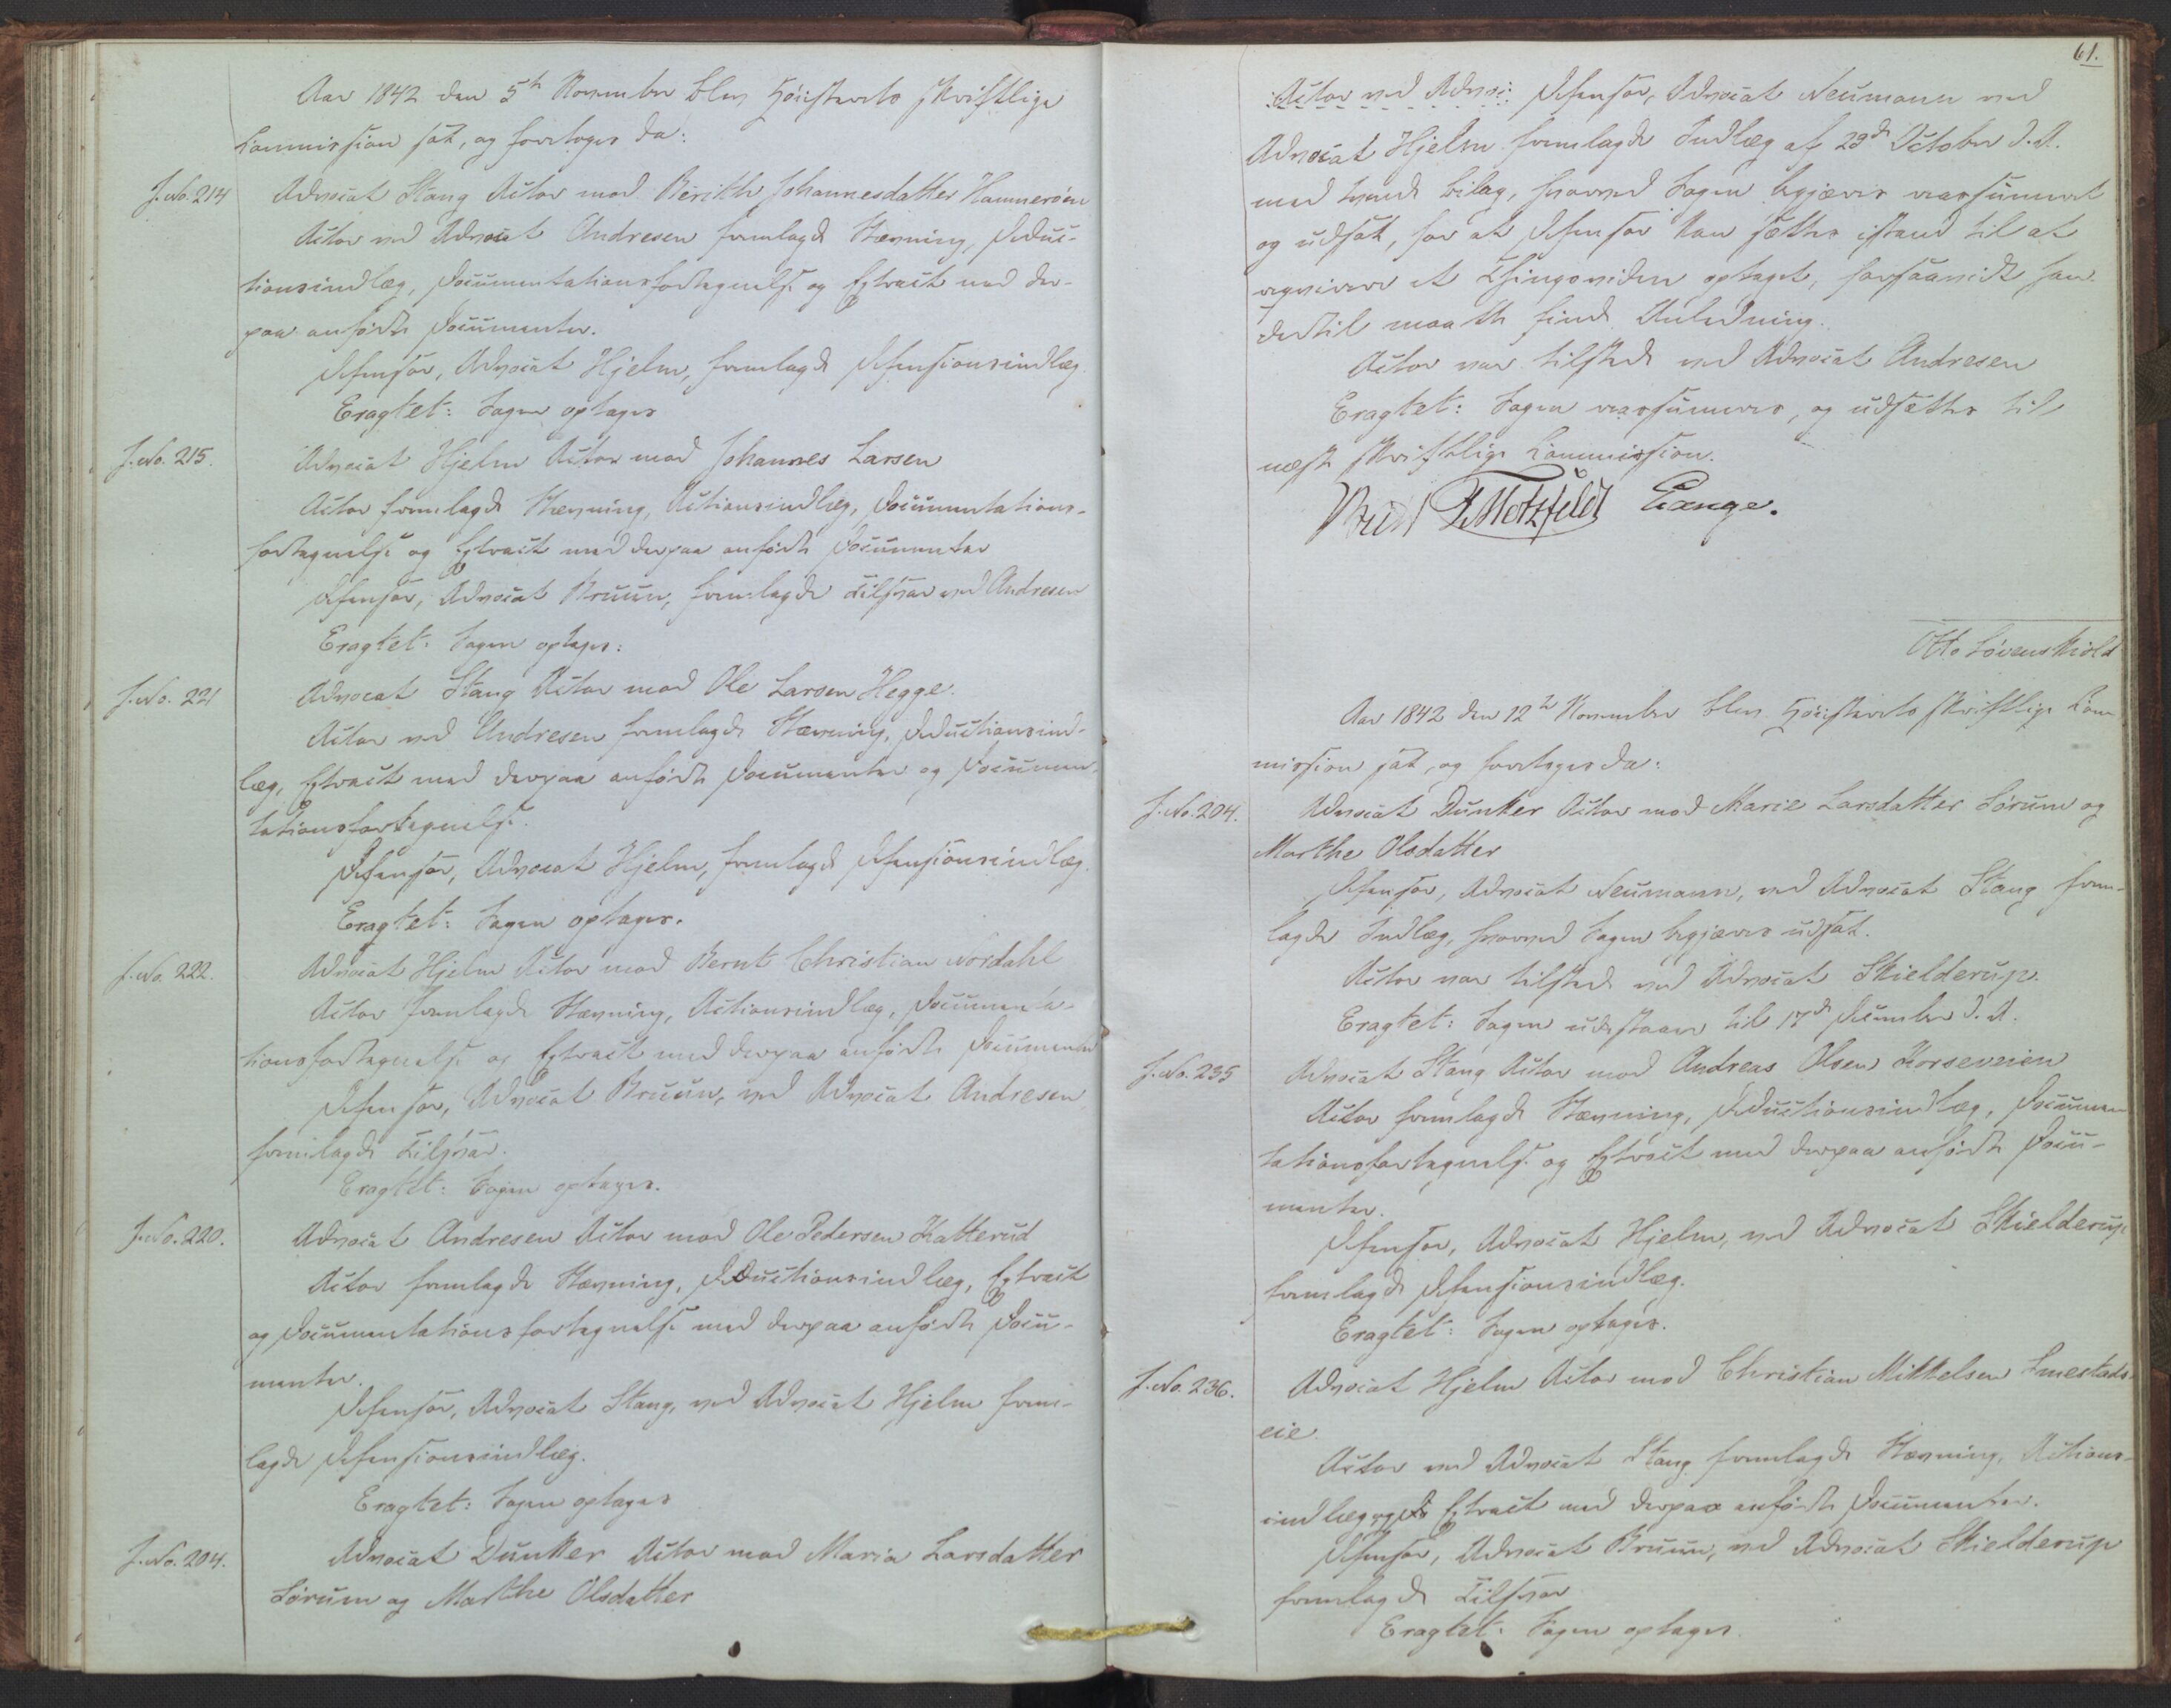 Aar 1842 den 5te November blev Høiesterets skriftlige
Commission sat, og foretoges da:
J. No. 214
Advocat Stang Actor mod Berithe Johannesdatter Hammerøen
Actor ved Advocat Andresen fremlagde Stævning, Deduc-
tionsindlæg, Documentationsfortegnelse og Extract med der-
paa anførte Documenter.
Defensor, Advocat Hjelm, fremlagde Defensionsindlæg.
Eragtet: Sagen optages
J. No. 215.
Advocat Hjelm Actor mod Johannes Larsen
Actor fremlagde Stævning, Actionsindlæg, Documentations-
fortegnelse og Extract med derpaa anførte Documenter
Defensor, Advocat Bruun, fremlagde Tilsvar ved Andresen
Eragtet: Sagen optages:
J. No. 221
Advocat Stang Actor mod Ole Larsen Hegge.
Actor ved Andresen fremlagde Stævning, Deductionsind-
læg, Extract med derpaa anførte Documenter og Documen-
tationsfortegnelse.
Defensor, Advocat Hjelm, fremlagde Defensionsindlæg.
Eragtet: Sagen optages.
J. No. 222.
Advocat Hjelm Actor mod Bernt Christian Nordahl
Actor fremlagde Stævning, Actionsindlæg, Documenta-
tionsfortegnelse og Extract med derpaa anførte Documenter
Defensor, Advocat Bruun, ved Advocat Andresen
fremlagde Tilsvar.
Eragtet: Sagen optages.
J. No. 220.
Advocat Andresen Actor mod Ole Pedersen Katterud
Actor fremlagde Stævning, Deductionsindlæg, Extract
og Documentationsfortegnelse med derpaa anførte Docu-
menter.
Defensor, Advocat Stang, ved Advocat Hjelm frem-
lagde Defensionsindlæg.
Eragtet: Sagen optages
J. No. 204.
Advocat Dunker Actor mod Maria Larsdatter
Sørum og Marthe Olsdatter
61.
Actor ved Advoc: Defensor, Advocat Neumann ved
Advocat Hjelm fremlagde Indlæg af 29de October d. A.
med tvende Bilag, hvorved Sagen begjæres reassumeret
og udsat, for at Defensor kan sættes istand til at
reqvirere et Thingsvidne optaget, forsaavidt han
dertil maatte finde Anledning.
Actor var tilstede ved Advocat Andresen
Eragtet: Sagen reassumeres, og udsættes til
næste skriftlige Commission.
P. Motzfeldt Lange.
Otto Løvenskiold
Aar 1842 den 12te November blev Høiesterets skriftlige Com-
mission sat, og foretoges da:
J. No. 204.
Advocat Dunker Actor mod Marie Larsdatter Sørum og
Marthe Olsdatter
Defensor, Advocat Neumann, ved Advocat Stang frem-
lagde Indlæg, hvorved Sagen begjæres udsat.
Actor var tilstede ved Advocat Skielderup.
Eragtet: Sagen udestaaer til 17de December d. A.
J. No. 235
Advocat Stang Actor mod Andreas Olsen Korseveien
Actor fremlagde Stævning, Deductionsindlæg, Documen
tationsfortegnelse og Extract med derpaa anførte Docu-
menter.
Defensor, Advocat Hjelm, ved Advocat Skielderup
fremlagde Defensionsindlæg.
Eragtet: Sagen optages.
J. No. 236.
Advocat Hjelm Actor mod Christian Mikkelsen Smestads-
eie.
Actor ved Advocat Stang fremlagde Stævning, Actions-
indlæg og Extract med derpaa anførte Documenter.
Defensor, Advocat Bruun, ved Advocat Skielderup
fremlagde Tilsvar
Eragtet: Sagen optages.